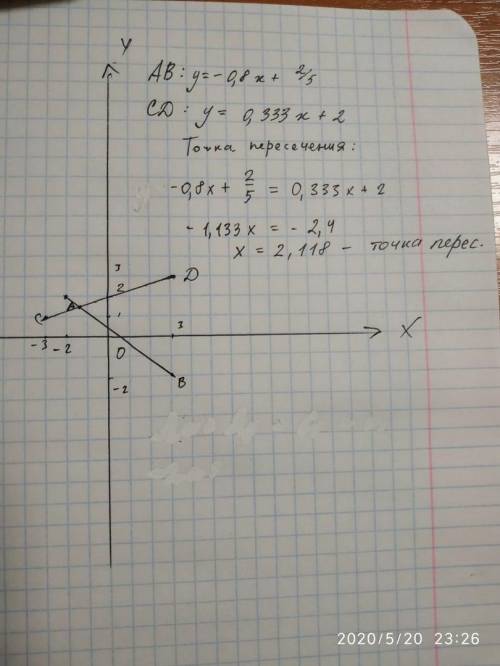 Y
AB: y = -0,8x + 2/5
CD: y = 0,333x + 2
Точка пересечения:
-0,8x + 2/5 = 0,333x + 2
-1,133x = -2,4
x = 2,118 - точка перес.
3
D
2
A
C
1
-3 -2
0
3
X
-2
B
2020/5/20 23:26